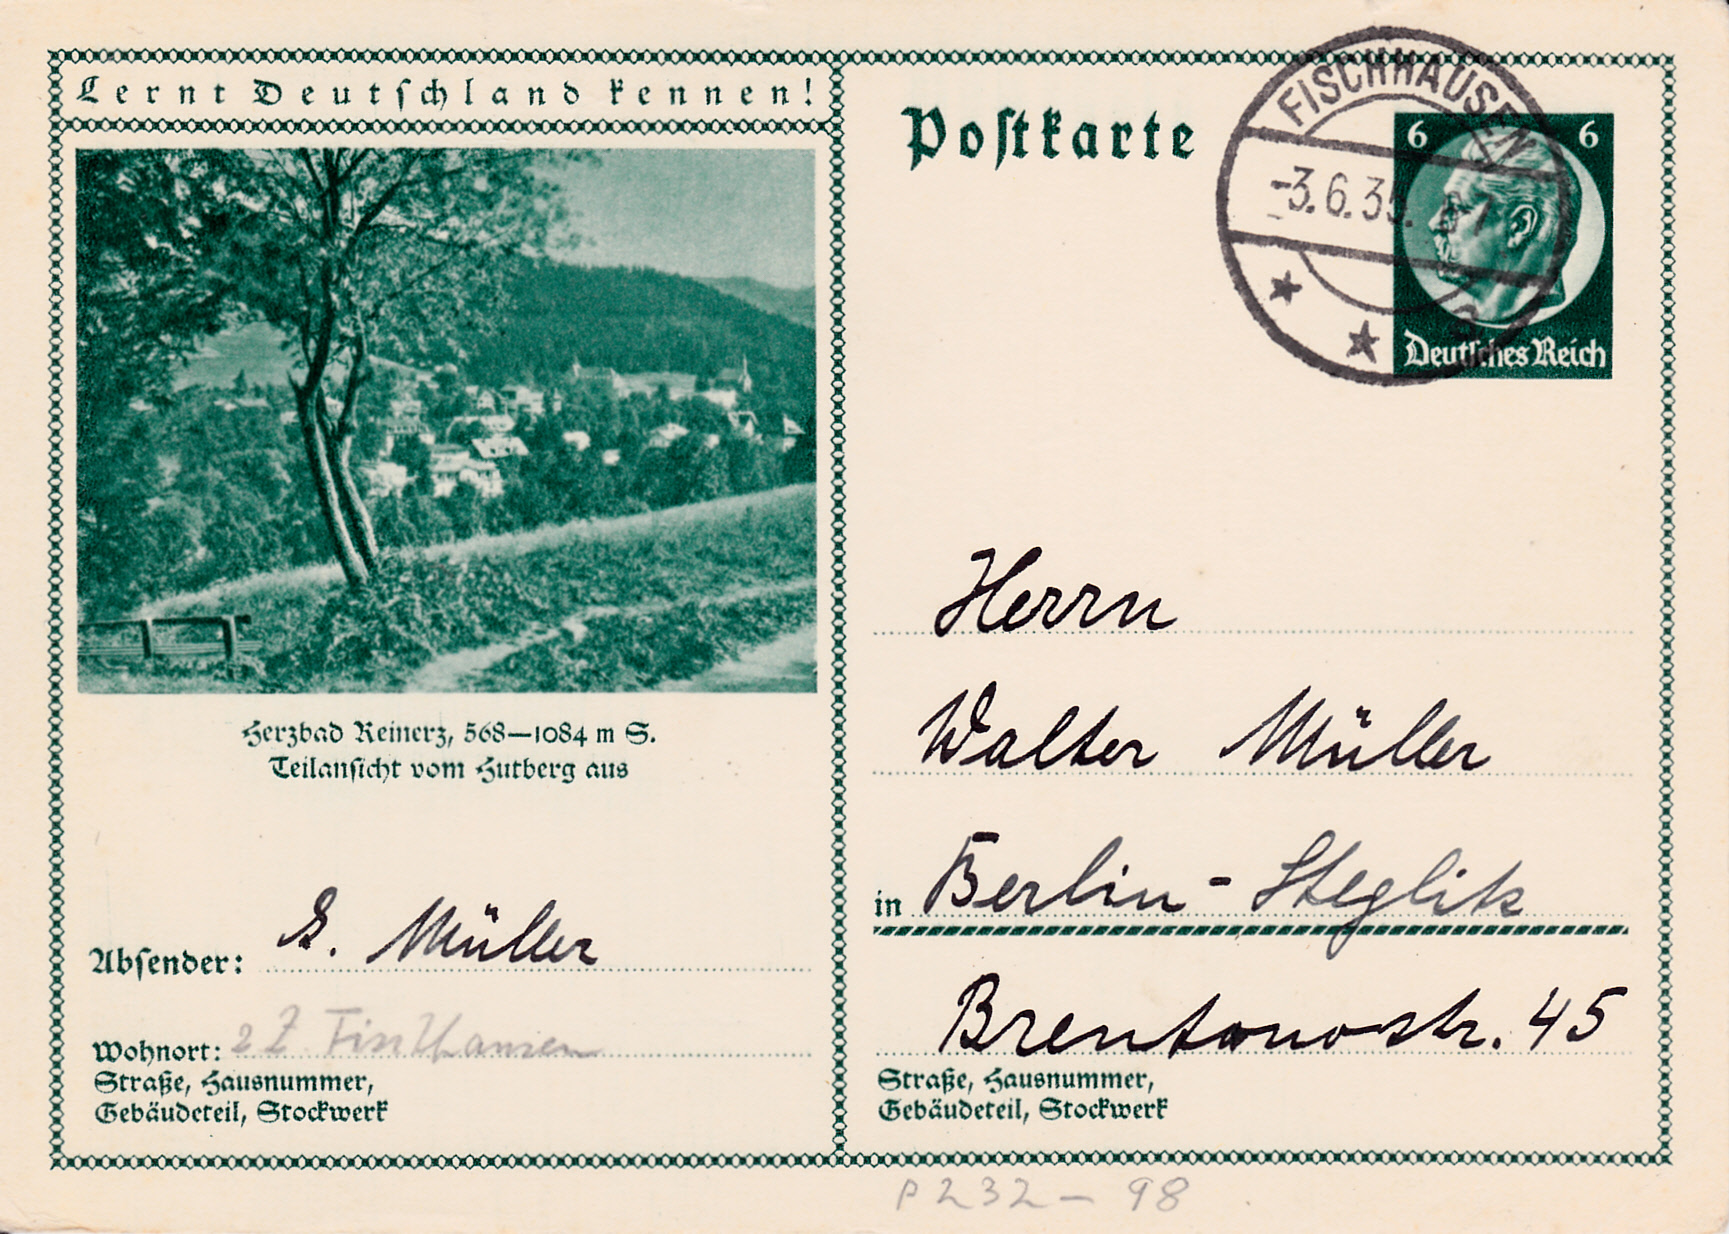 Lernt Deutschland kennen!
Postkarte
FISCHHAUSEN
-3.6.35.
6 6
Deutsches Reich
Herzbad Reinerz, 568—1084 m S.
Teilansicht vom Hutberg aus
Herrn
Walter Müller
in Berlin-Steglitz
Brentanostr. 45
Straße, Hausnummer,
Gebäudeteil, Stockwerk
Absender: G. Müller
Wohnort: z Z Fischhausen
Straße, Hausnummer,
Gebäudeteil, Stockwerk
P 232 - 98